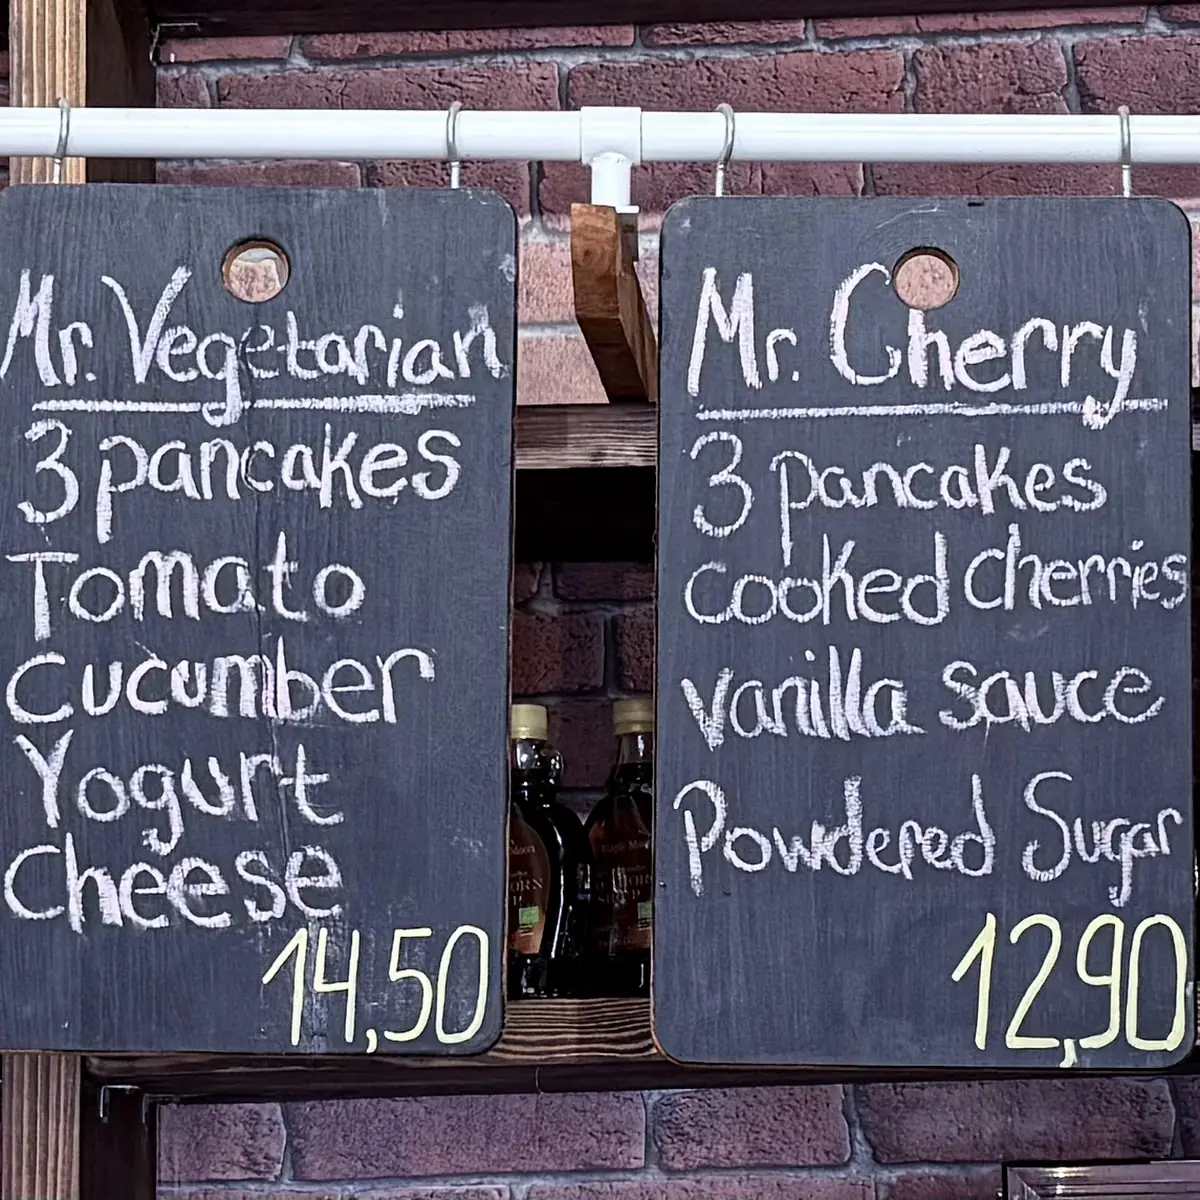 Mr. Vegetarian
3 pancakes
Tomato
Cucumber
Yogurt
Cheese
14,50
Mr. Cherry
3 pancakes
Cooked cherries
vanilla sauce
Powdered Sugar
12,90